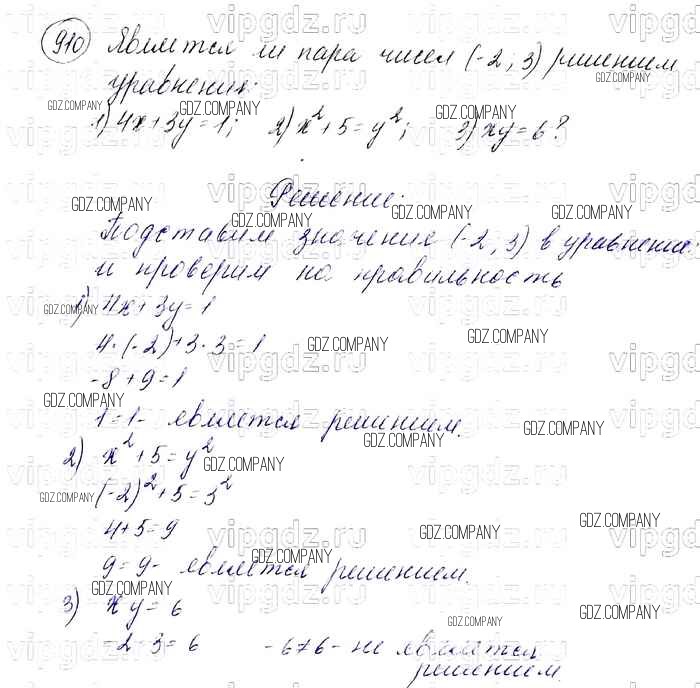 910 Является ли пара чисел (-2; 3) решением
уравнения:
1) 4x + 3y = 1; 2) x² + 5 = y²; 3) xy = 6?
Решение:
Подставим значение (-2, 3) в уравнение
и проверим на правильность
1) 4x + 3y = 1
4·(-2) + 3·3 = 1
-8 + 9 = 1
1 = 1 - является решением.
2) x² + 5 = y²
(-2)² + 5 = 3²
4 + 5 = 9
9 = 9 - является решением.
3) xy = 6
-2·3 = 6 -6≠6 - не является
решением.
vipgdz.ru
GDZ.COMPANY